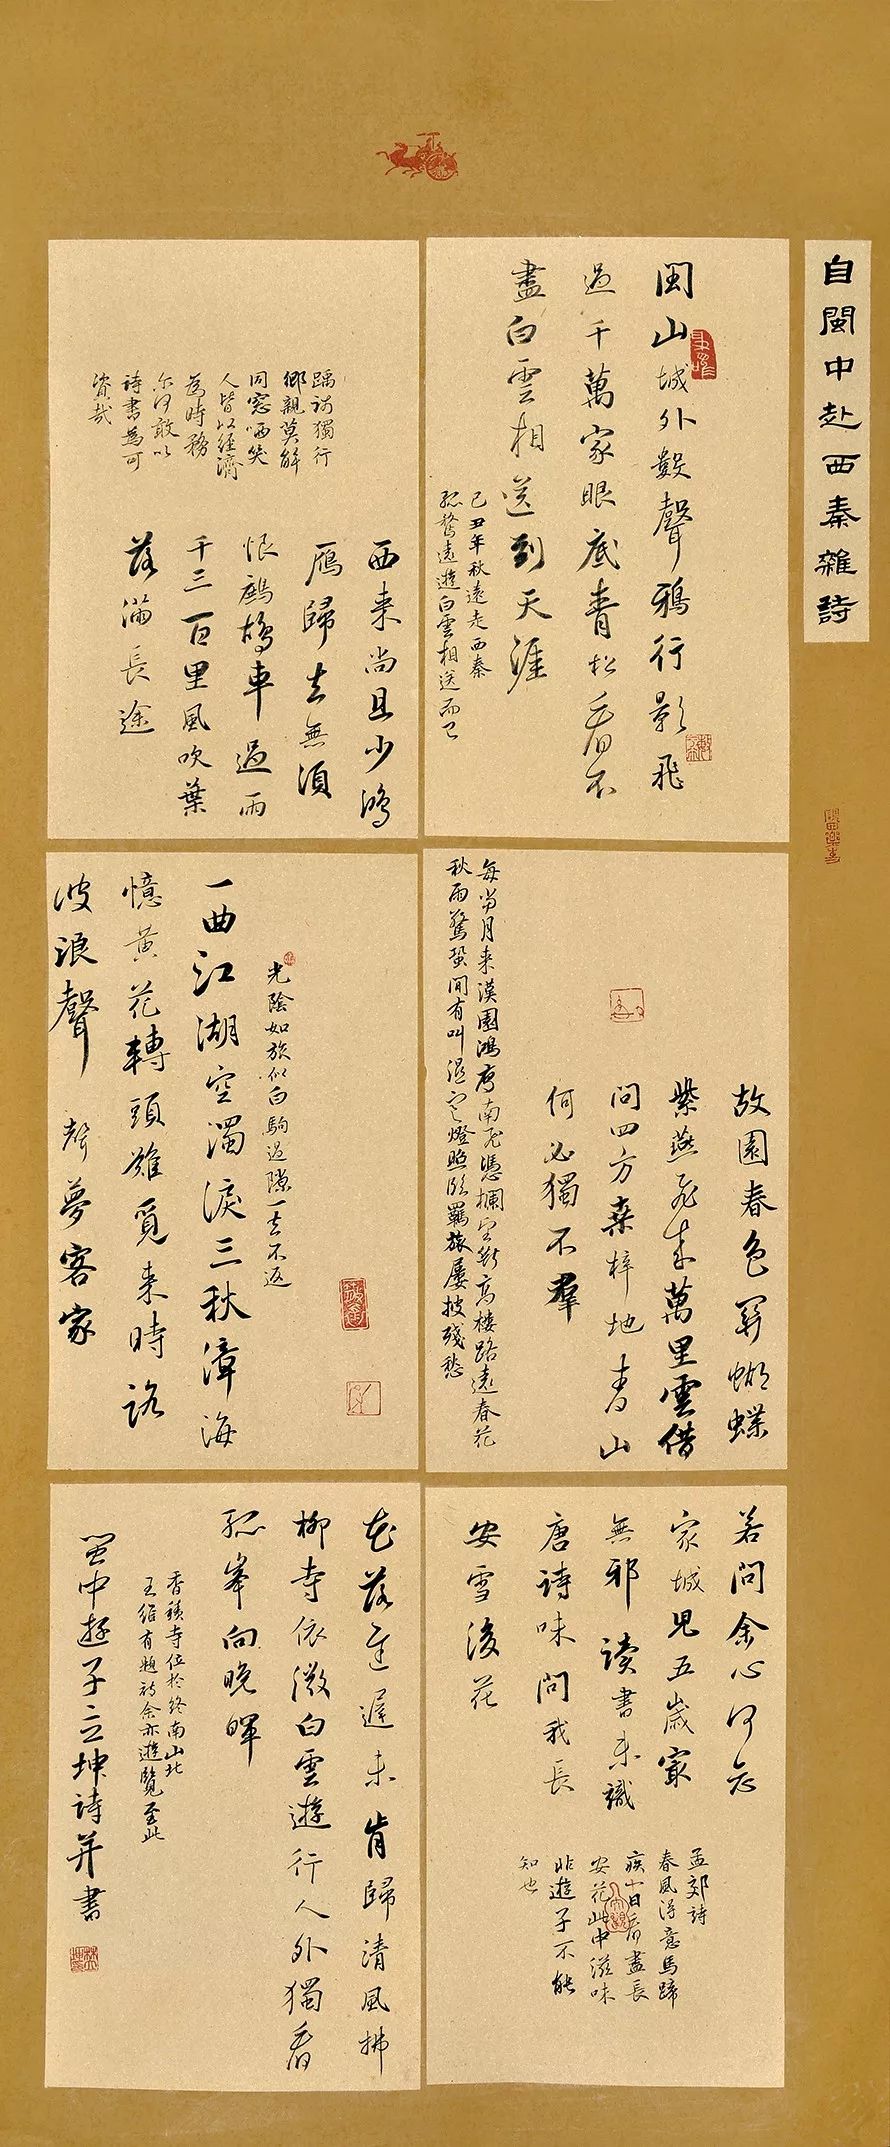 自閩中赴西秦雜詩
閩山城外數聲鴉行影飛
過千萬家眼底青松看不
盡白雲相送到天涯
己丑年秋遠走西秦
孤鶩遠遊白雲相送而已
西來尚且少鴻
雁歸去無須
恨鷓鴣車過雨
千三百里風吹葉
落滿長途
踽踽獨行
鄉親莫解
同窓哂笑
人皆以經濟
為時務
尔何敢以
詩書為可
資哉
故園春色舞蝴蝶
紫燕飛來萬里雲借
問四方桑梓地青山
何必獨不羣
每當月來漢園鴻雁南飛憑欄望斷高樓路遠春花
秋雨驚蛩間有叫溫寒燈照臥羈旅屢披殘愁
光陰如旅似白駒過隙一去不返
一曲江湖空濁淚三秋漳海
憶黃花轉頭難覓來時路
波浪聲聲夢客家
若問余心何念
家城兒五歲最
無邪讀書未識
唐詩味問我長
安雪後花
孟郊詩
春風得意馬蹄
疾一日看盡長
安花此中滋味
非遊子不能
知也
花落重遲未肯歸清風拂
柳寺依微白雲遊行人外獨看
孤峯向晚暉
香積寺位於終南山北
王維有題詩余亦遊覽至此
閩中遊子立坤詩并書